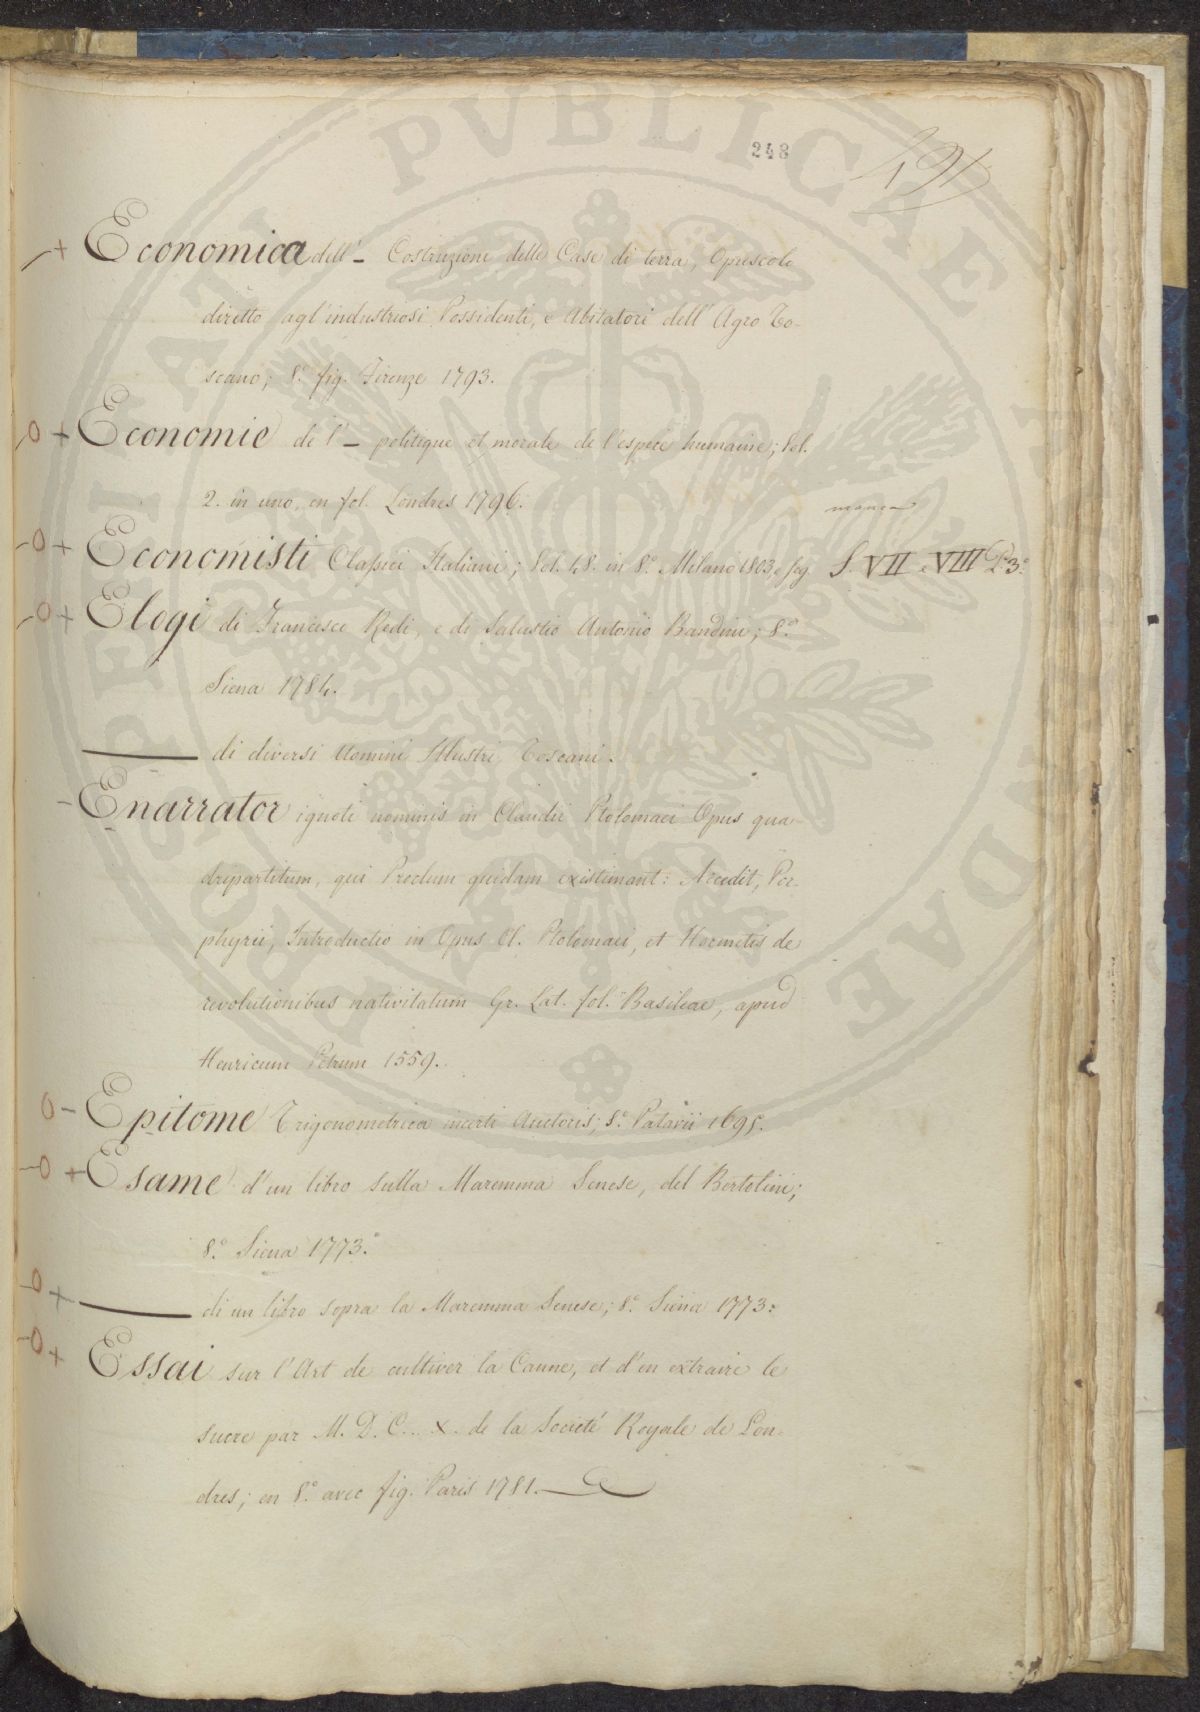 248
191
Economica dell' - Costruzione delle Case di terra, Opuscolo
diretto agl'industriosi Possidenti, e Abitatori dell'Agro To-
scano; 8.° fig. Firenze 1793.
Economie de l' - politique et morale de l'espèce humaine; Vol.
2. in uno, en fol. Londres 1796.
manca
Economisti Classici Italiani; Vol. 48. in 8.° Milano 1803 e seg. S. VII e VIII P. 3.°
Elogi di Francesco Redi, e di Salustio Antonio Bandini; 8.°
Siena 1784.
——— di diversi Uomini Illustri Toscani.
Enarrator ignoti nominis in Claudii Ptolomaei Opus qua-
dripartitum, qui Proclum quidam existimant: Accedit, Por-
phyrii, Introductio in Opus Cl. Ptolomaei, et Hermetis de
revolutionibus nativitatum Gr. Lat. fol. Basileae, apud
Henricum Petrum 1559.
Epitome Trigonometrica incerti Auctoris; 8.° Patavii 1695.
Esame d'un libro sulla Maremma Senese, del Bertolini;
8.° Siena 1773.
——— di un libro sopra la Maremma Senese; 8.° Siena 1773.
Essai sur l'Art de cultiver la Canne, et d'en extraire le
sucre par M. D. C... x. de la Societé Royale de Lon-
dres; en 8.° avec fig. Paris 1781.
PROSPERITATI PUBLICAE AUGENDAE